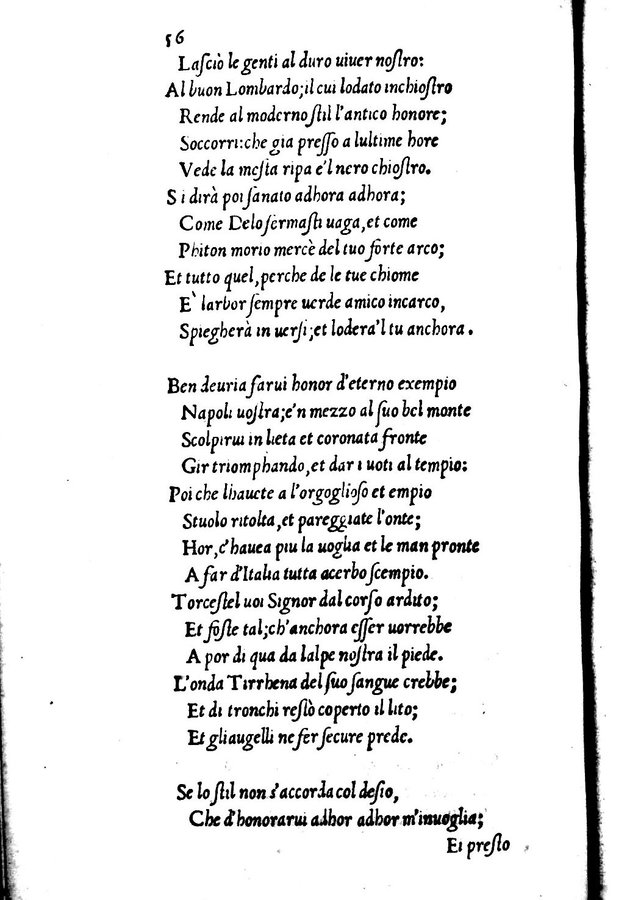 56
Lasciò le genti al duro uiuer nostro:
Al buon Lombardo;il cui lodato inchiostro
Rende al moderno stil l'antico honore;
Soccorri:che gia presso a lultime hore
Vede la mesta ripa e'l nero chiostro.
Si dirà poi sanato adhora adhora;
Come Delo fermasti uaga,et come
Phiton morio mercè del tuo forte arco;
Et tutto quel,perche de le tue chiome
E` larbor sempre uerde amico incarco,
Spiegherà in uersi;et lodera'l tu anchora.
Ben deuria farui honor d'eterno exempio
Napoli uostra;e'n mezzo al suo bel monte
Scolpirui in lieta et coronata fronte
Gir triomphando,et dar i uoti al tempio:
Poi che lhauete a l'orgoglioso et empio
Stuolo ritolta,et pareggiate l'onte;
Hor,c'hauea piu la uoglia et le man pronte
A far d'Italia tutta acerbo scempio.
Torcestel uoi Signor dal corso ardito;
Et foste tal;ch'anchora esser uorrebbe
A por di qua da lalpe nostra il piede.
L'onda Tirrhena del suo sangue crebbe;
Et di tronchi restò coperto il lito;
Et gliaugelli ne fer secure prede.
Se lo stil non s'accorda col desio,
Che d'honorarui adhor adhor m'inuoglia;
Et presto